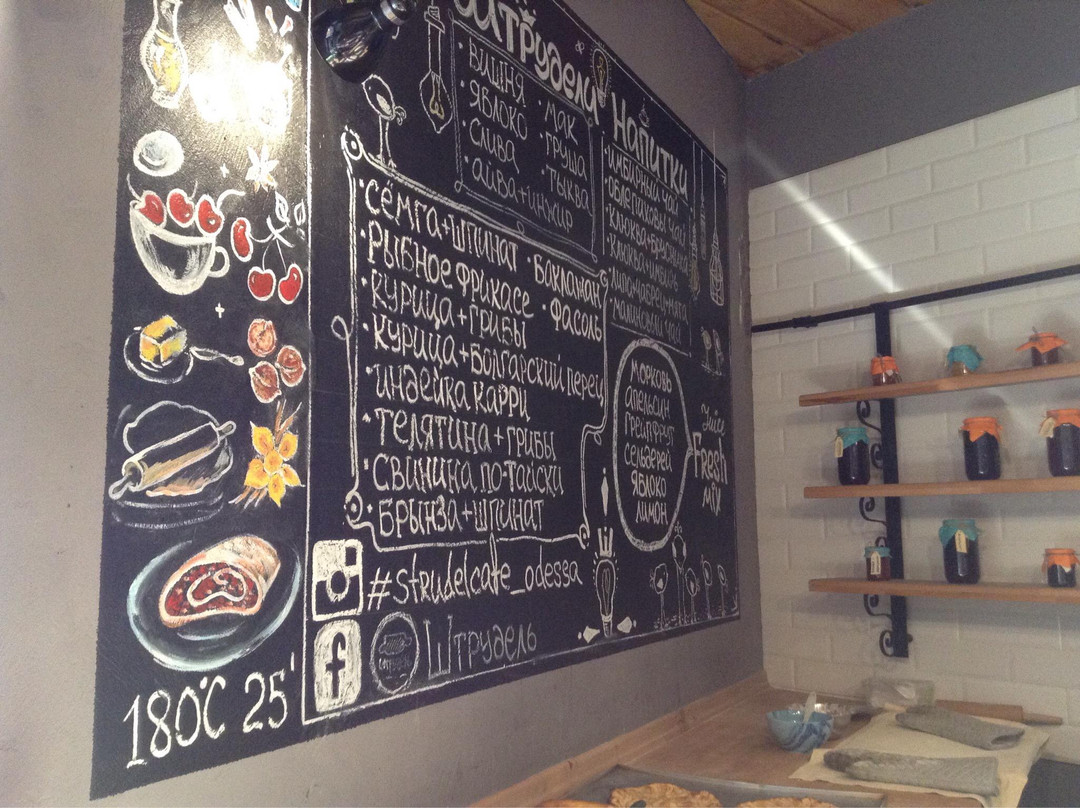 Штрудели
· вишня
· яблоко
· слива
· айва+инжир
· мак
· груша
· тыква
· сёмга+шпинат
· рыбное фрикасе
· курица+грибы
· курица+болгарский перец
· индейка карри
· телятина+грибы
· свинина по-тайски
· брынза+шпинат
· баклажан
· фасоль
Напитки
· имбирный чай
· облепиховый чай
· клюква+брусника
· клюква+имбирь
· малиновый чай
морковь
апельсин
грейпфрут
сельдерей
яблоко
лимон
Juice
Fresh
mix
#strudelcafe_odessa
f
Штрудель
180°C 25'